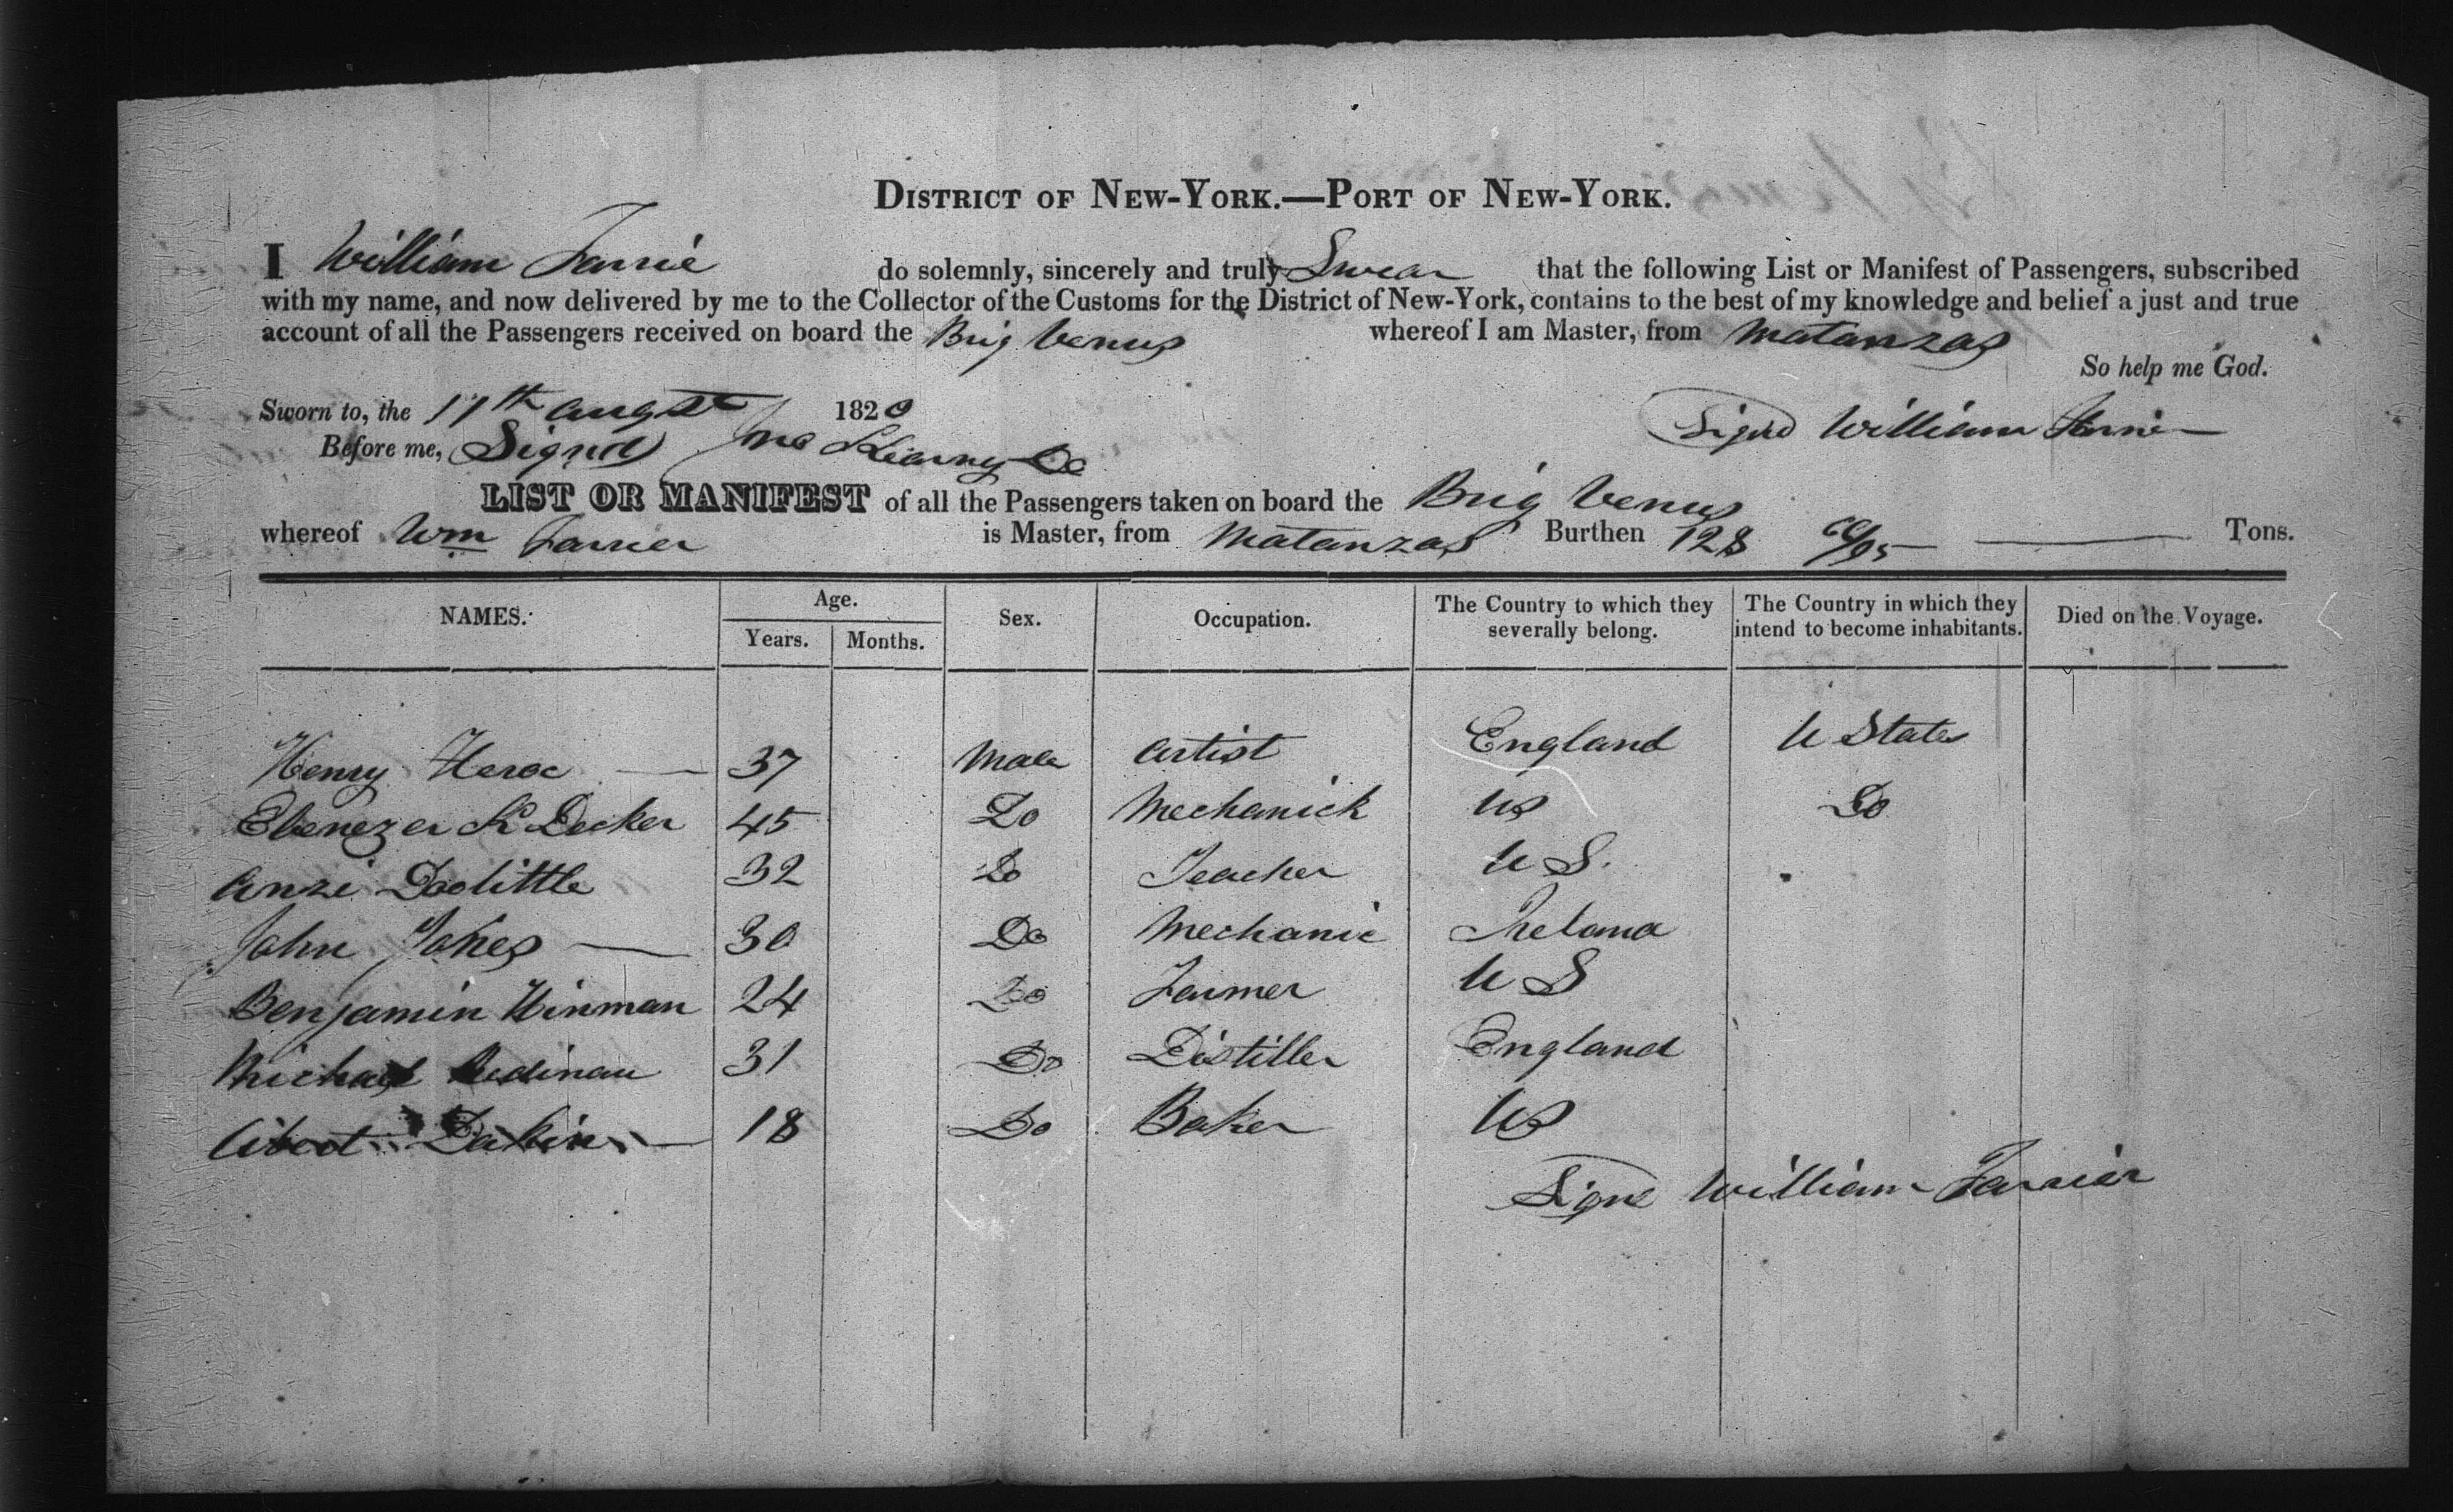 DISTRICT OF NEW-YORK.—PORT OF NEW-YORK.
I William Farrie do solemnly, sincerely and truly Swear that the following List or Manifest of Passengers, subscribed
with my name, and now delivered by me to the Collector of the Customs for the District of New-York, contains to the best of my knowledge and belief a just and true
account of all the Passengers received on board the Brig Venus whereof I am Master, from Matanzas
So help me God.
Sworn to, the 17th augst 1820
Signd William
Before me, Signd Jno
LIST OR MANIFEST of all the Passengers taken on board the Brig Venus
whereof Wm Farrier is Master, from Matanzas Burthen 128 /95 Tons.
NAMES. Age. Sex. Occupation. The Country to which they severally belong. The Country in which they intend to become inhabitants. Died on the Voyage.
Years. Months.
Henry 37 Male Artist England U States
Ebenezer Decker 45 Do Mechanick US Do
Anzi Doolittle 32 Do Teacher U S.
John 30 Do Mechanic Ireland
Benjamin Hinman 24 Do Farmer U S
Michael 31 Do Distiller England
Dakin 18 Do Baker US
Signd William Farrier